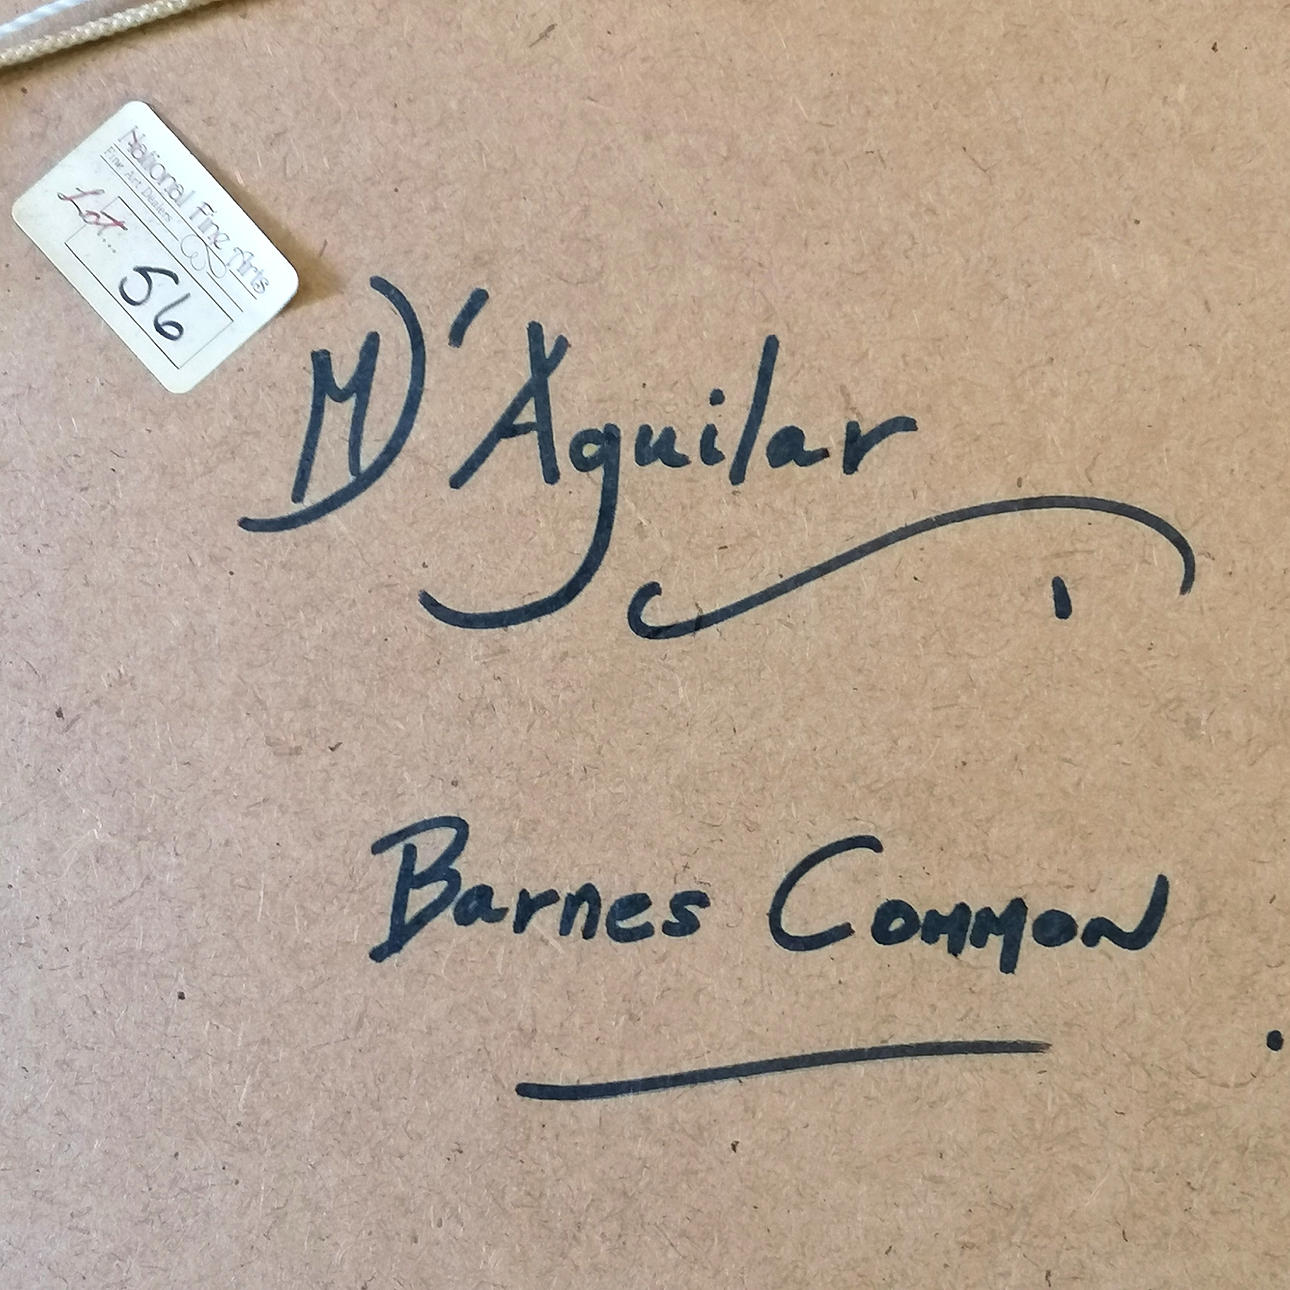 National Fine Arts
Fine Art Dealers
Lot...
56
M D'Aguilar
Barnes Common